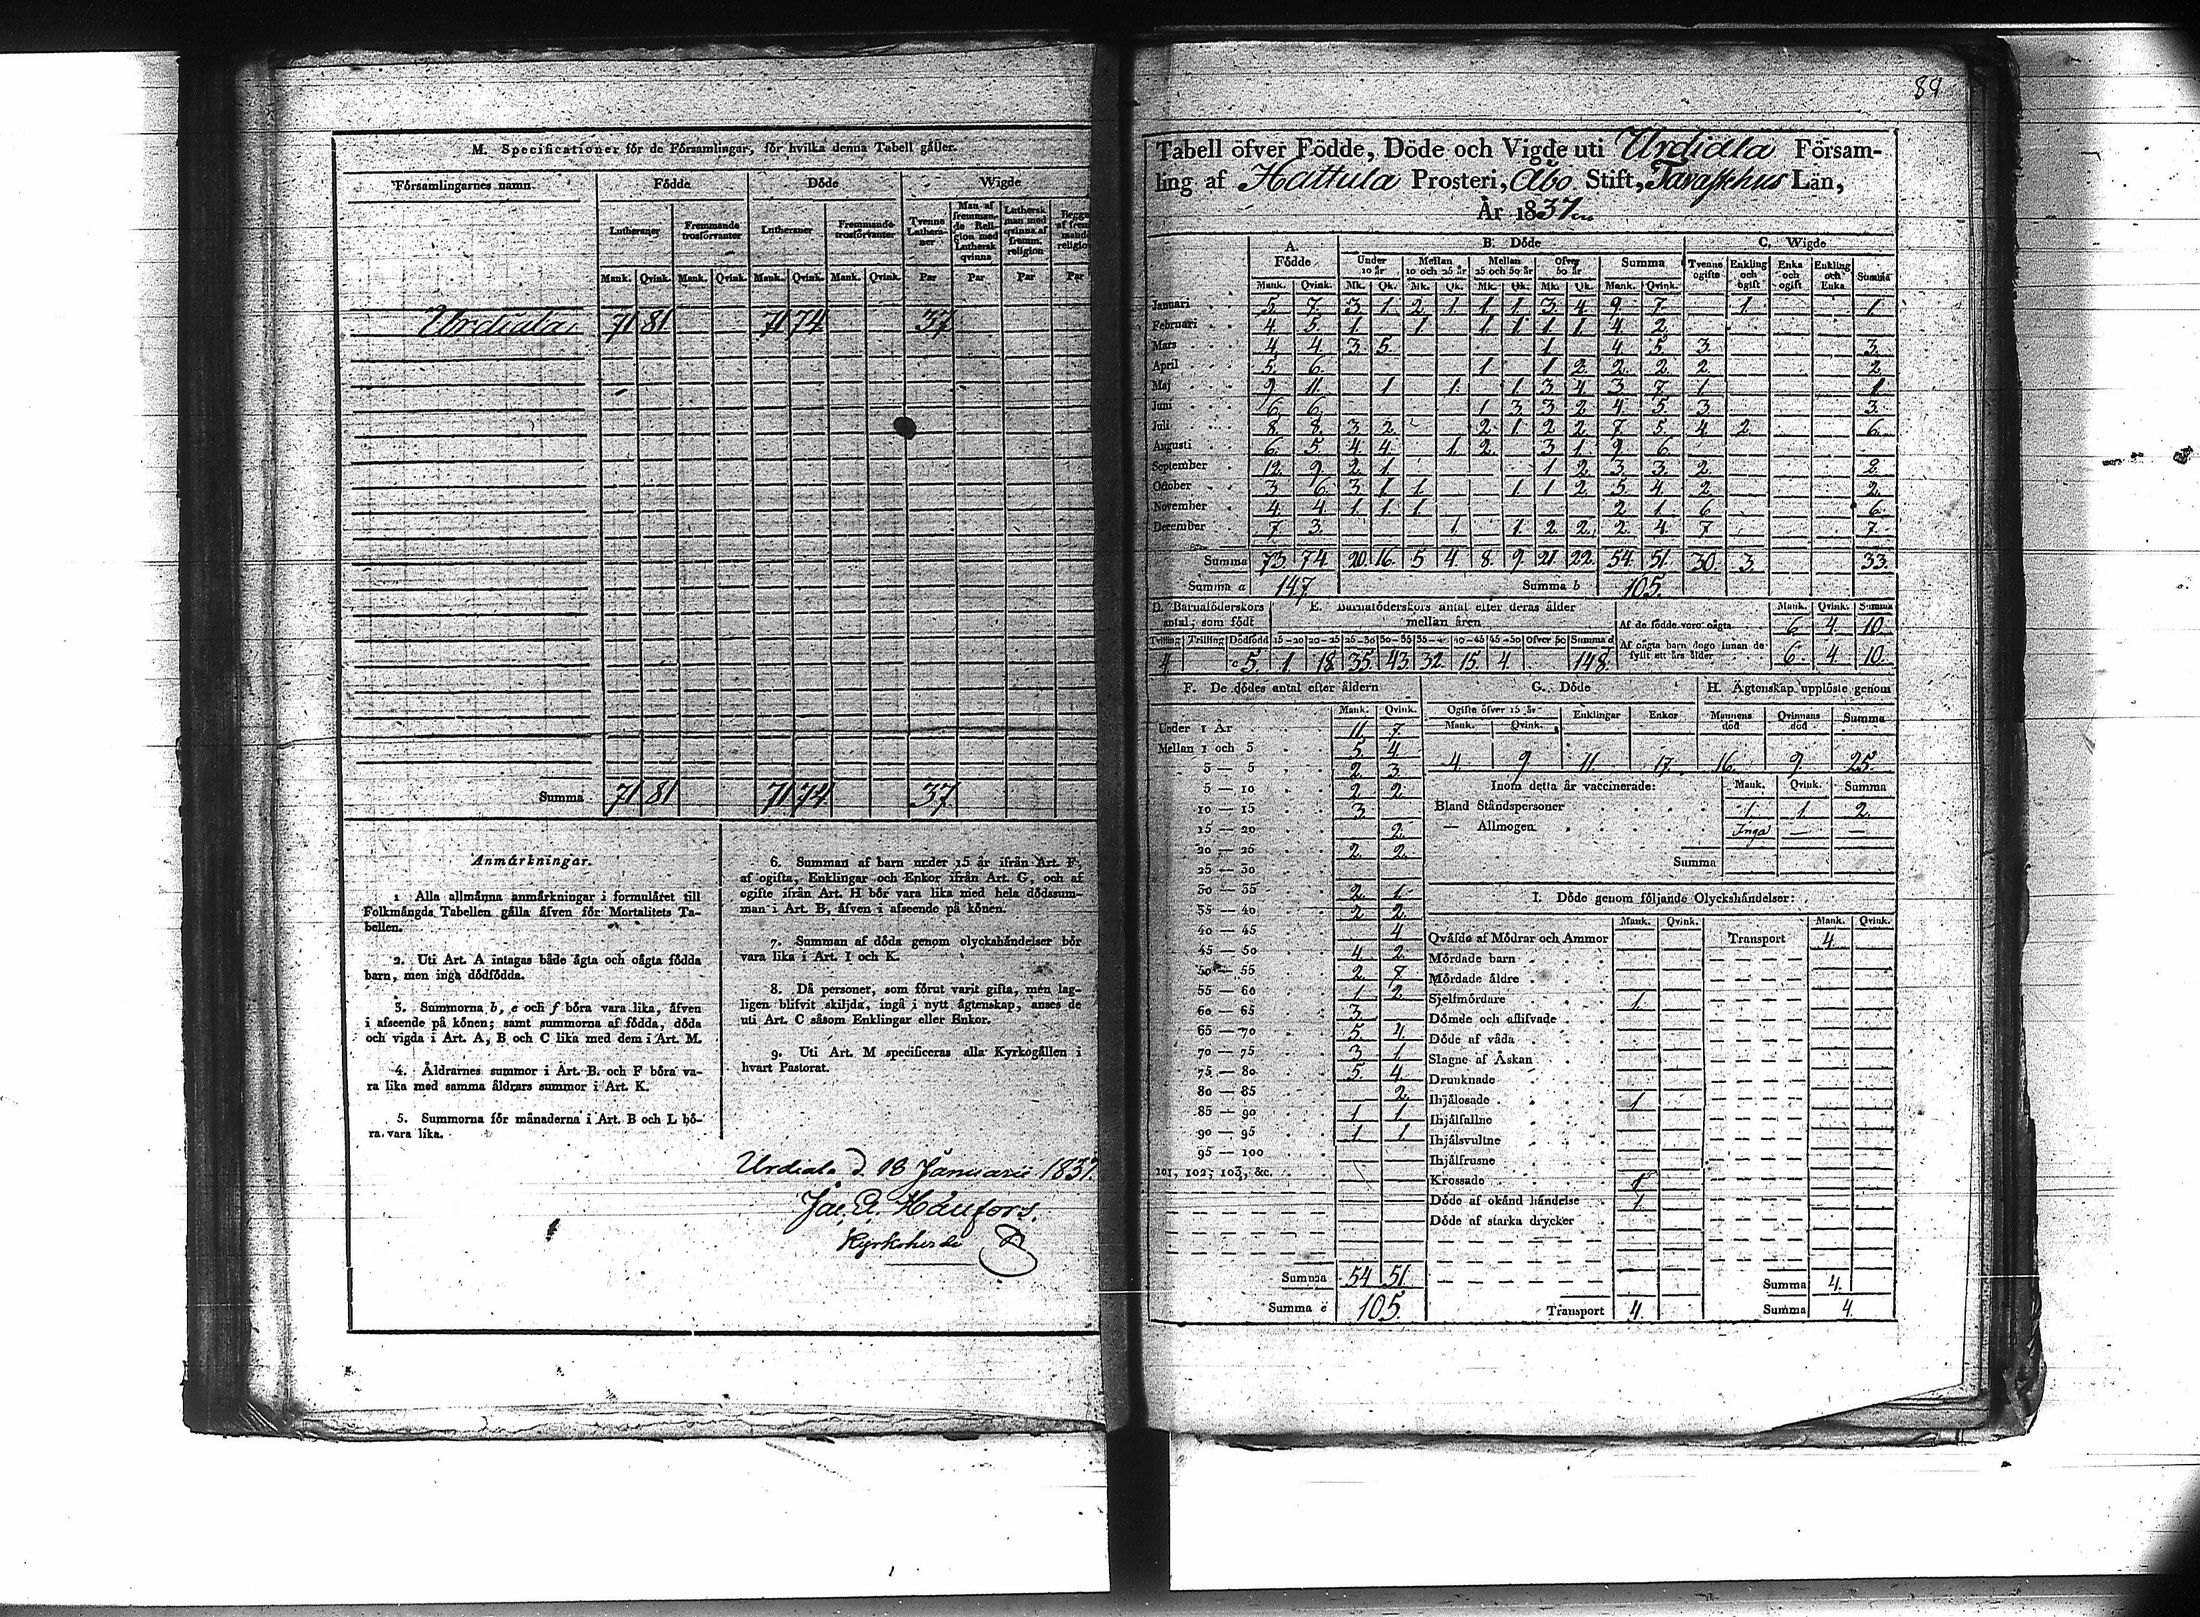 M. Specificationer för de Församlingar, för hvilka denna Tabell gäller.
Församlingarnes namn. Födde Döde Wigde
Lutheraner Fremmande trosförvanter Lutheraner Fremmande trosförvanter Tvenne Lutheraner Man af fremmande Religion med Luthersk qvinna Luthersk man med qvinna af fremm. religion
Mank. Qvink. Mank. Qvink. Mank. Qvink. Mank. Qvink. Par Par Par Par
Urdiala 71 81 71 74 37
Summa 71 81 71 74 37
Anmärkningar.
1 Alla allmänna anmärkningar i formuläret till
Folkmängds Tabellen gälla äfven för Mortalitets Ta-
bellen.
2. Uti Art. A intagas både ägta och oägta födda
barn, men inga dödfödda.
3. Summorna b, e och f böra vara lika, äfven
i afseende på könen; samt summorna af födda, döda
och vigda i Art. A, B och C lika med dem i Art. M.
4. Åldrarnes summor i Art. B. och F böra va-
ra lika med samma åldrars summor i Art. K.
5. Summorna för månaderna i Art. B och L bö-
ra vara lika.
6. Summan af barn under 15 år ifrån Art. F,
af ogifta, Enklingar och Enkor ifrån Art. G, och af
ogifte ifrån Art. H bör vara lika med hela dödssum-
man i Art. B, äfven i afseende på könen.
7. Summan af döda genom olyckshändelser bör
vara lika i Art. I och K.
8. Då personer, som förut varit gifta, men lag-
ligen blifvit skiljda, ingå i nytt ägtenskap, anses de
uti Art. C såsom Enklingar eller Enkor.
9. Uti Art. M specificeras alla Kyrkogällen i
hvart Pastorat.
Urdiala d. 18 Januarii 1837.
Kyrkoherde
89
Tabell öfver Födde, Döde och Vigde uti Urdiala Församling
af Hattula Prosteri, Åbo Stift, Tavasthus Län,
År 1837
A. Födde B. Döde C. Wigde
Under 10 år Mellan 10 och 25 år Mellan 25 och 50 år Öfver 50 år Summa Tvenne ogifte Enkling och ogift Enka och ogift Enkling och Enka Summa
Mank. Qvink. Mk. Qk. Mk. Qk. Mk. Qk. Mk. Qk. Mank. Qvink.
Januari 5 7 3 1 2 1 1 1 3 4 9 7 1 1
Februari 4 5 1 1 1 1 1 1 4 2
Mars 4 4 3 5 1 4 5 3 3
April 5 6 1 1 2 2 2 2 2
Maj 9 11 1 1 1 3 4 3 7 1 1
Juni 6 6 1 3 3 2 4 5 3 3
Juli 8 8 3 2 2 1 2 2 7 5 4 2 6
Augusti 6 5 4 4 1 2 3 1 9 6
September 12 9 2 1 1 2 3 3 2 2
October 3 6 3 1 1 1 1 2 5 4 2 2
November 4 4 1 1 1 2 1 6 6
December 7 3 1 1 2 2 2 4 7 7
Summa 73 74 20 16 5 4 8 9 21 22 54 51 30 3 33
Summa a 147 Summa b 105
D. Barnaföderskors antal, som födt E. Barnaföderskors antal efter deras ålder mellan åren Mank. Qvink. Summa
Af de födde voro oägta 6 4 10
Tvilling Trilling Dödfödd 15-20 20-25 25-30 30-35 35-40 40-45 45-50 Öfver 50 Summa d
Af oägta barn dogo innan de fyllt ett års ålder 6 4 10
4 5 1 18 35 43 32 15 4 148
F. De dödes antal efter åldern
Mank. Qvink.
Under 1 År 11 7
Mellan 1 och 3 5 4
3 — 5 2 3
5 — 10 2 2
10 — 15 3
15 — 20 2
20 — 25 2 2
25 — 30
30 — 35 2 1
35 — 40 2 2
40 — 45 4
45 — 50 4 2
50 — 55 2 8
55 — 60 1 2
60 — 65 3
65 — 70 5 4
70 — 75 3 1
75 — 80 5 4
80 — 85 2
85 — 90 1 1
90 — 95 1 1
95 — 100
101, 102, 103, &c.
Summa 54 51
Summa e 105
G. Döde
Ogifte öfver 15 år Enklingar Enkor
Mank. Qvink.
4 9 11 17
H. Ägtenskap upplöste genom
Mannens död Qvinnans död Summa
16 9 25
Inom detta år vaccinerade: Mank. Qvink. Summa
Bland Ståndspersoner 1 1 2
— Allmogen Inga — —
Summa
I. Döde genom följande Olyckshändelser:
Mank. Qvink. Mank. Qvink.
Qväfde af Mödrar och Ammor Transport 4
Mördade barn
Mördade äldre
Sjelfmördare 1
Dömde och aflifvade
Döde af våda
Slagne af Åskan
Drunknade
Ihjälosade 1
Ihjälfallne
Ihjälsvultne
Ihjälfrusne
Krossade 1
Döde af okänd händelse 1
Döde af starka drycker
Summa 4
Transport 4 Summa 4